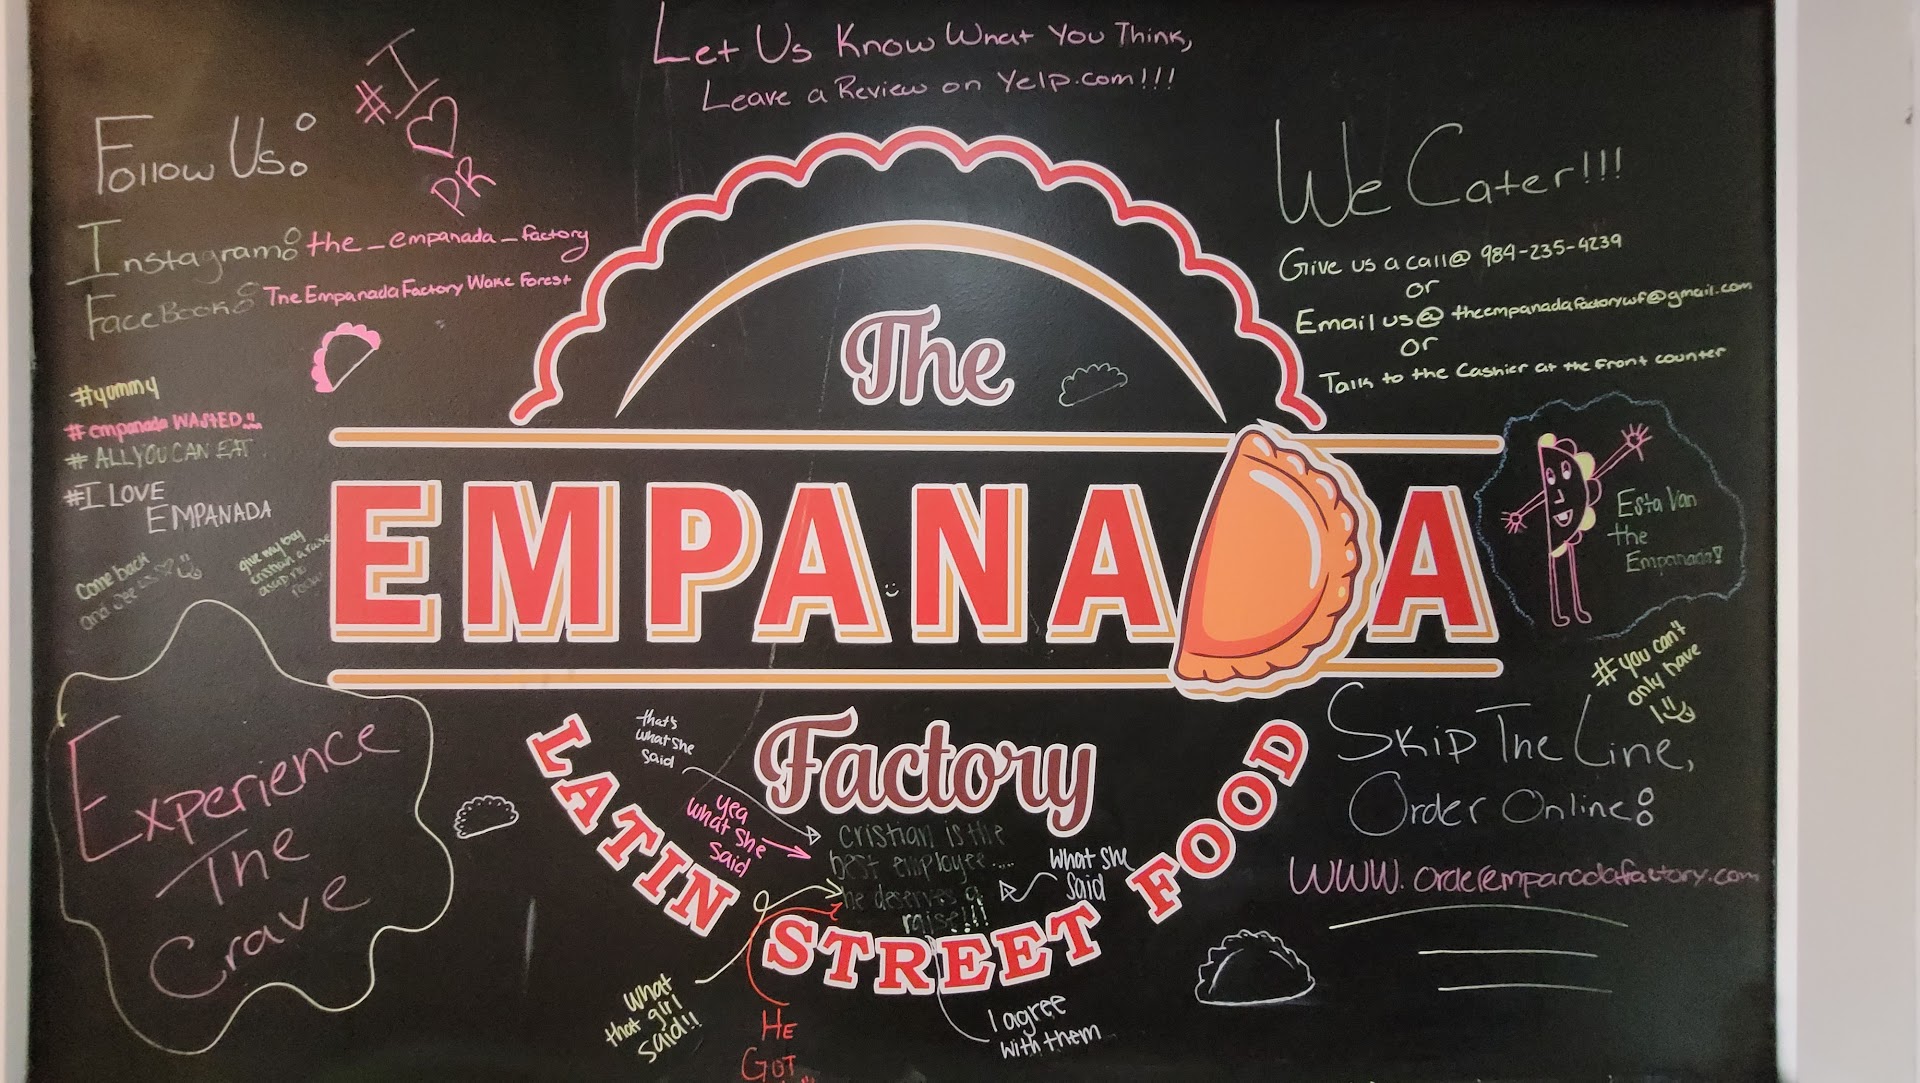 Let Us Know What You Think,
Leave a Review on Yelp.com!!!
#I
♡
PR
Follow Us:
Instagram: the_empanada_factory
FaceBook: The Empanada Factory Wake Forest
We Cater!!!
Give us a call@ 984-235-4239
or
Email us@ theempanadafactorywf@gmail.com
or
Talk to the Cashier at the Front counter
The
EMPANADA
Factory
LATIN STREET FOOD
#yummy
#empanada WASTED
#ALL YOU CAN EAT
#I LOVE
EMPANADA
come back
and see us
give my boy
cristian a raise
asap no
Esta Van
the
Empanada!
#you can't
only have
1
Experience
The
Crave
that's
what she
said
yea
what she
said
cristian is the
best employee.....
he deserves a
raise!!!
what she
said
what
that girl
said!!
HE
GOT
I agree
with them
Skip The Line,
Order Online:
WWW.orderempanadafactory.com